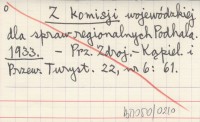 Z Komisji wojewódzkiej
dla spraw regionalnych Podhala.
1933. - Prz. Zdroj. - Kąpiel i
Przew Turyst. 22, nr 6: 61.